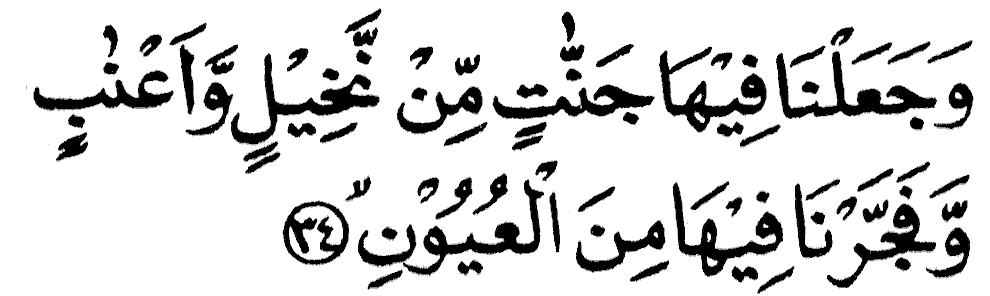 وَجَعَلْنَا فِيْهَا جَنّٰتٍ مِّنْ نَّخِيْلٍ وَّاَعْنٰبٍ
وَّفَجَّرْنَا فِيْهَا مِنَ الْعُيُوْنِۙ ﴿٣٤﴾